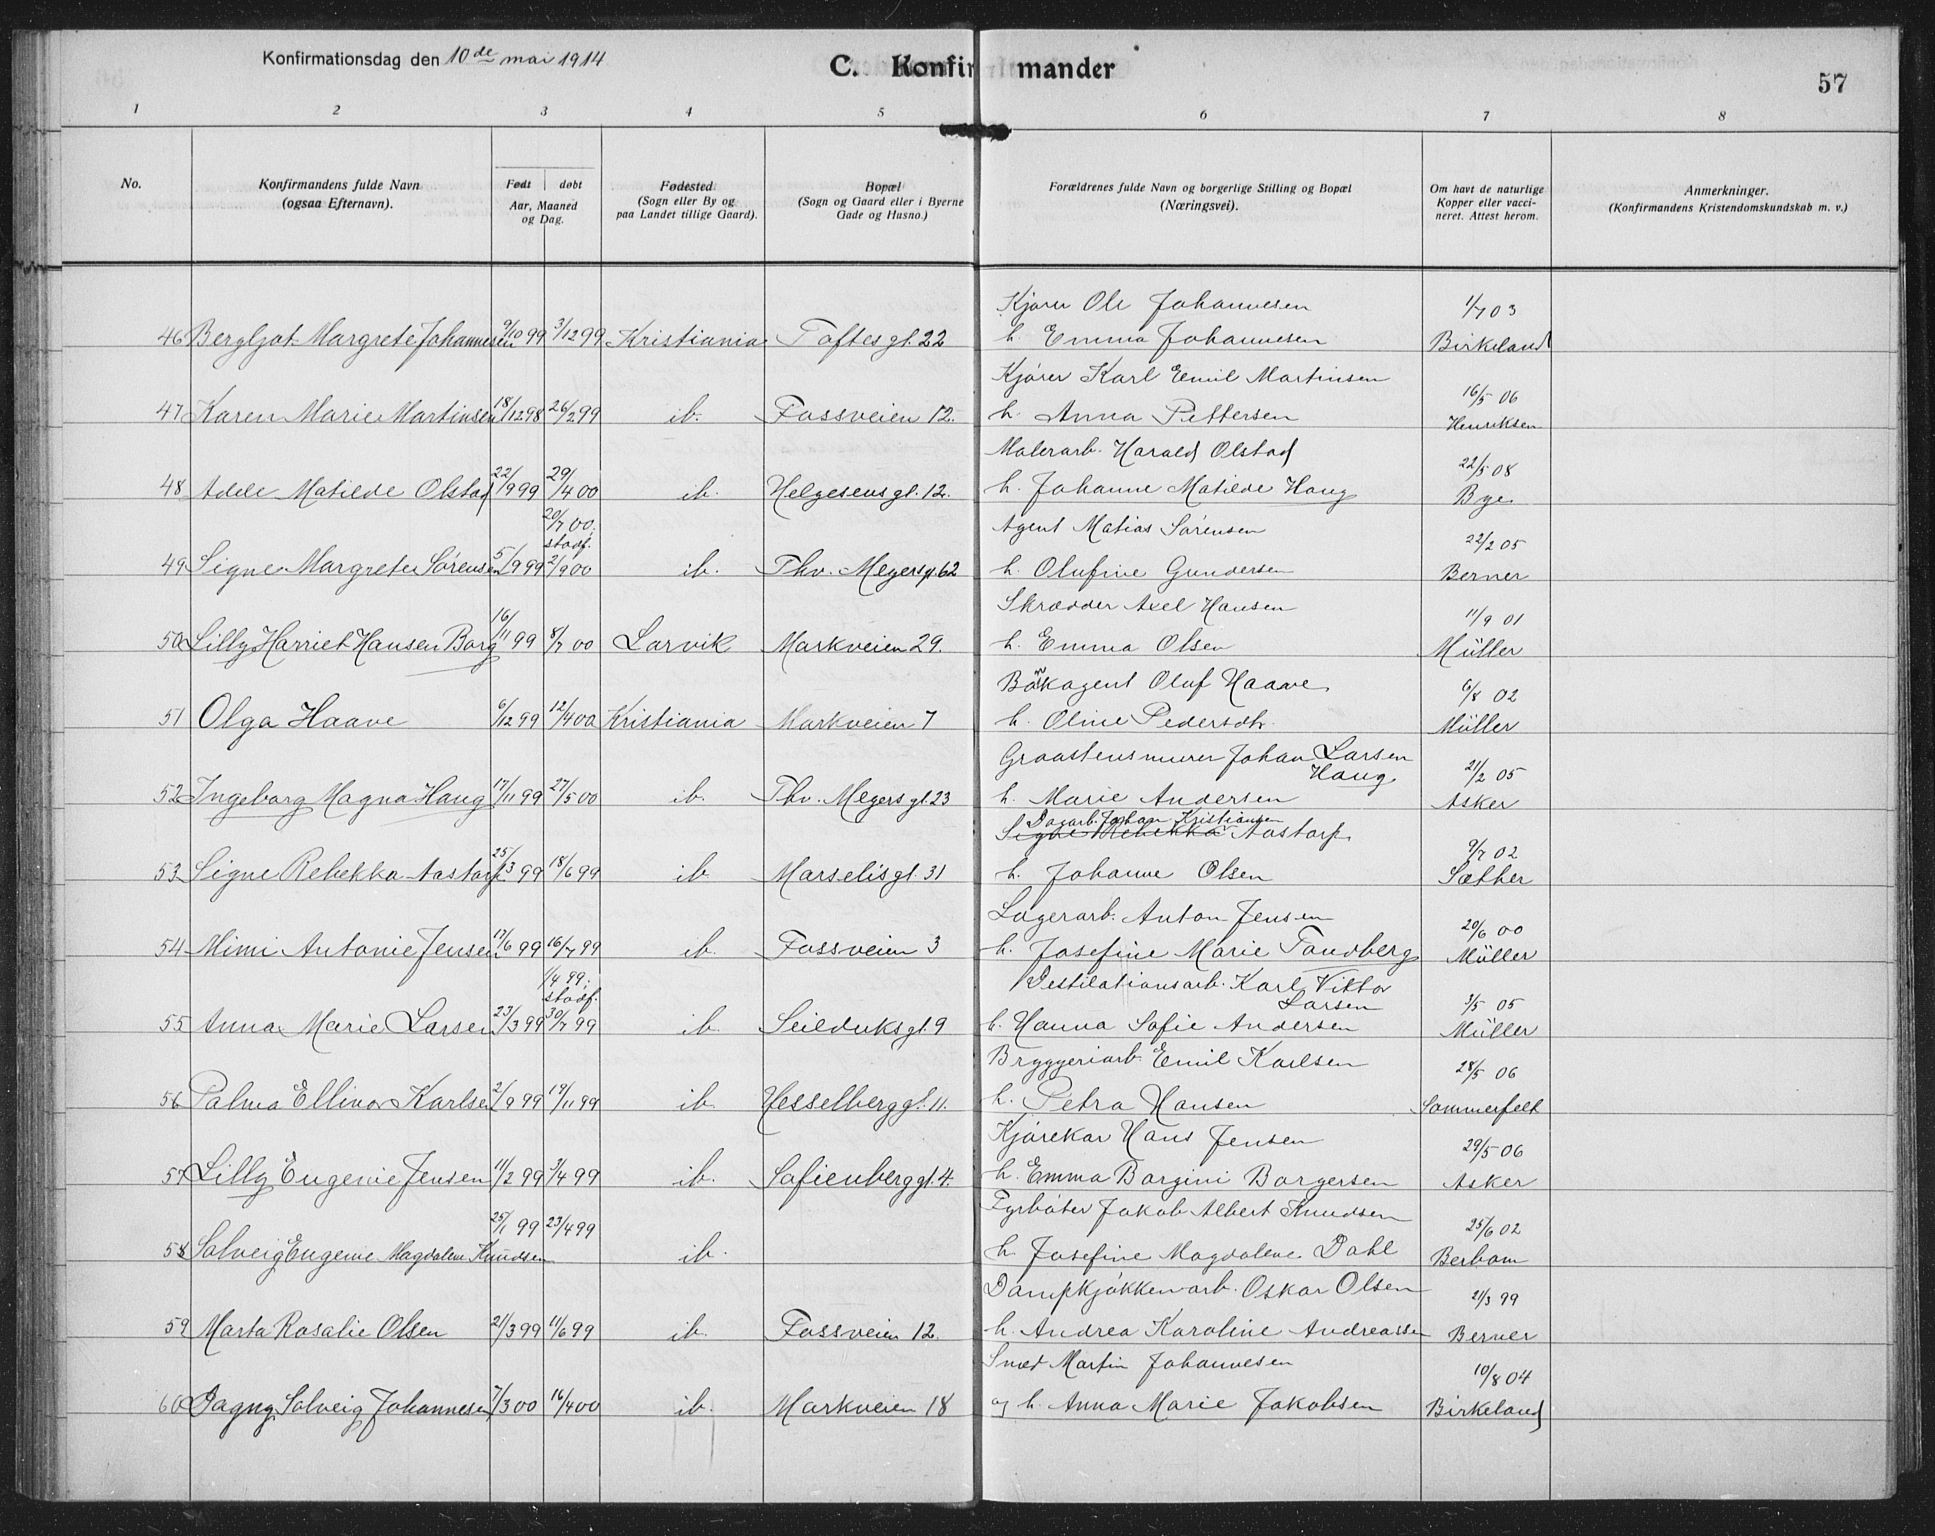 Konfirmationsdag den 10de mai 1914
C. Konfirmander
57
1 2 3 4 5 6 7 8
No.
Konfirmandens fulde Navn
(ogsaa Efternavn).
Født | døbt
Aar, Maaned
og Dag.
Fødested
(Sogn eller By og
paa Landet tillige Gaard).
Bopæl
(Sogn og Gaard eller i Byerne
Gade og Husno.)
Forældrenes fulde Navn og borgerlige Stilling og Bopæl
(Næringsvei).
Om havt de naturlige
Kopper eller vacci-
neret. Attest herom.
Anmerkninger.
(Konfirmandens Kristendomskundskab m. v.)
Kjører Ole Johannesen 1/7 03
46 Bergljot Margrete Johannesen 9/10 99 3/12 99 Kristiania Toftesgt. 22 h. Emma Johannesen Birkeland
Kjører Karl Emil Martinsen 16/5 06
47 Karen Marie Martinsen 18/12 98 26/2 99 ib. Fossveien 12. h. Anna Pettersen Henriksen
Malerarb. Harald Olstad 22/5 08
48 Adele Matilde Olstad 22/9 99 29/4 00 ib. Helgesensgt. 12. h. Johanne Matilde Haug Bye
20/7 00; stadf. Agent Matias Sørensen 22/2 05
49 Signe Margrete Sørensen 5/9 99 2/9 00 ib. Thv. Meyersgt. 62 h. Olufine Gundersen Berner
Skrædder Axel Hansen 11/9 01
50 Lilly Harriet Hansen Borg 16/11 99 8/7 00 Larvik Markveien 29. h. Emma Olsen Müller
Bokagent Oluf Haave 6/8 02
51 Olga Haave 6/12 99 12/4 00 Kristiania Markveien 7 h. Oline Pedersdtr. Müller
Graastensmurer Johan Larsen
Haug 21/2 05
52 Ingeborg Magna Haug 17/11 99 27/5 00 ib. Thv. Meyersgt. 23 h. Marie Andersen Asker
Dagarb. Johan Kristiansen
Signe Rebekka Aastorp 9/7 02
53 Signe Rebekka Aastorp 25/3 99 18/6 99 ib. Marselisgt. 31 h. Johanne Olsen Sæther
Lagerarb. Anton Jensen 20/6 00
54 Mimi Antonie Jensen 17/6 99 16/7 99 ib. Fossveien 3 h. Josefine Marie Tandberg Müller
1/4 99; stadf. Destilationsarb. Karl Viktor
Larsen 3/5 05
55 Anna Marie Larsen 23/3 99 30/7 99 ib. Seilduksgt. 9 h. Hanna Sofie Andersen Müller
Bryggeriarb. Emil Karlsen 28/5 06
56 Palma Ellinor Karlsen 2/9 99 19/11 99 ib. Hesselberggt. 11. h. Petra Hansen Sommerfelt
Kjørekar Hans Jensen 29/5 06
57 Lilly Eugenie Jensen 11/2 99 3/4 99 ib. Sofienberggt. 4. h. Emma Borgini Borgersen Asker
25/1 99 23/4 99 Fyrbøter Jakob Albert Knudsen 25/6 02
58 Solveig Eugenie Magdalene Knudsen ib. h. Josefine Magdalene Dahl Berbom
Dampkjøkkenarb. Oskar Olsen 21/3 99
59 Marta Rosalie Olsen 21/3 99 11/6 99 ib. Fossveien 12. h. Andrea Karoline Andreassen Berner
Smed Martin Johannesen 10/8 04
60 Dagny Solveig Johannesen 7/3 00 16/4 00 ib. Markveien 18 og h. Anna Marie Jakobsen Birkeland